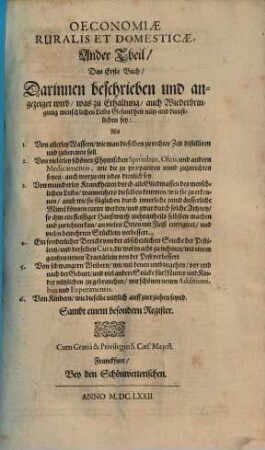 OECONOMIÆ
RURALIS ET DOMESTICÆ.
Ander Theil/
Das Erste Buch/
Darinnen beschrieben und an-
gezeiget wird/ was zu Erhaltung/ auch Wiederbrin-
gung menschlichen Leibs Gesundtheit nütz und dienst-
lichen sey:
Als
1. Von allerley Wassern/ wie man dieselben zu rechter Zeit distilliren
und zubereiten soll.
2. Von vielerley schönen Chymischen Spiritibus, Oleis, und andern
Medicamentis, wie die zu præpariren unnd zuzurichten
seyen/ auch worzu ein jedes dienlich sey.
3. Von mancherley Kranckheiten durch alle Gliedmassen der mensch-
lichen Leibs/ wannenhero dieselben kommen/ wie sie zu erken-
nen/ auch wie sie füglichen durch innerliche unnd deusserliche
Mittel können curirt werden/ und zwar durch solche Artzney/
so ihm ein fleissiger Haußwirth mehrentheils selbsten machen
und zurichten kan/ an vielen Orten mit Fleiß corrigiret/ und
vielen bewehrten Stücklein verbessert.
4. Ein sonderlicher Bericht von der abscheulichen Seuche der Pesti-
lentz/ und derselben Cura, die wol in acht zu nehmen/ mit einem
gantzen neuen Tractätlein von der Pest verbessert.
5. Von schwangern Weibern/ wie mit denen umbzugehen/ vor und
nach der Geburt/ und viel andere Stücke für Mutter und Kin-
der nützlichen zu gebrauchen/ mit schönen neuen Additioni-
bus und Experimenten.
6. Von Kindern/ wie dieselbe nützlich auffzuerziehen seynd.
Sambt einem besondern Register.
Cum Gratiâ & Privilegio S. Cæs. Majest.
Franckfurt/
Bey den Schönwetterischen.
ANNO M. DC. LXXII.